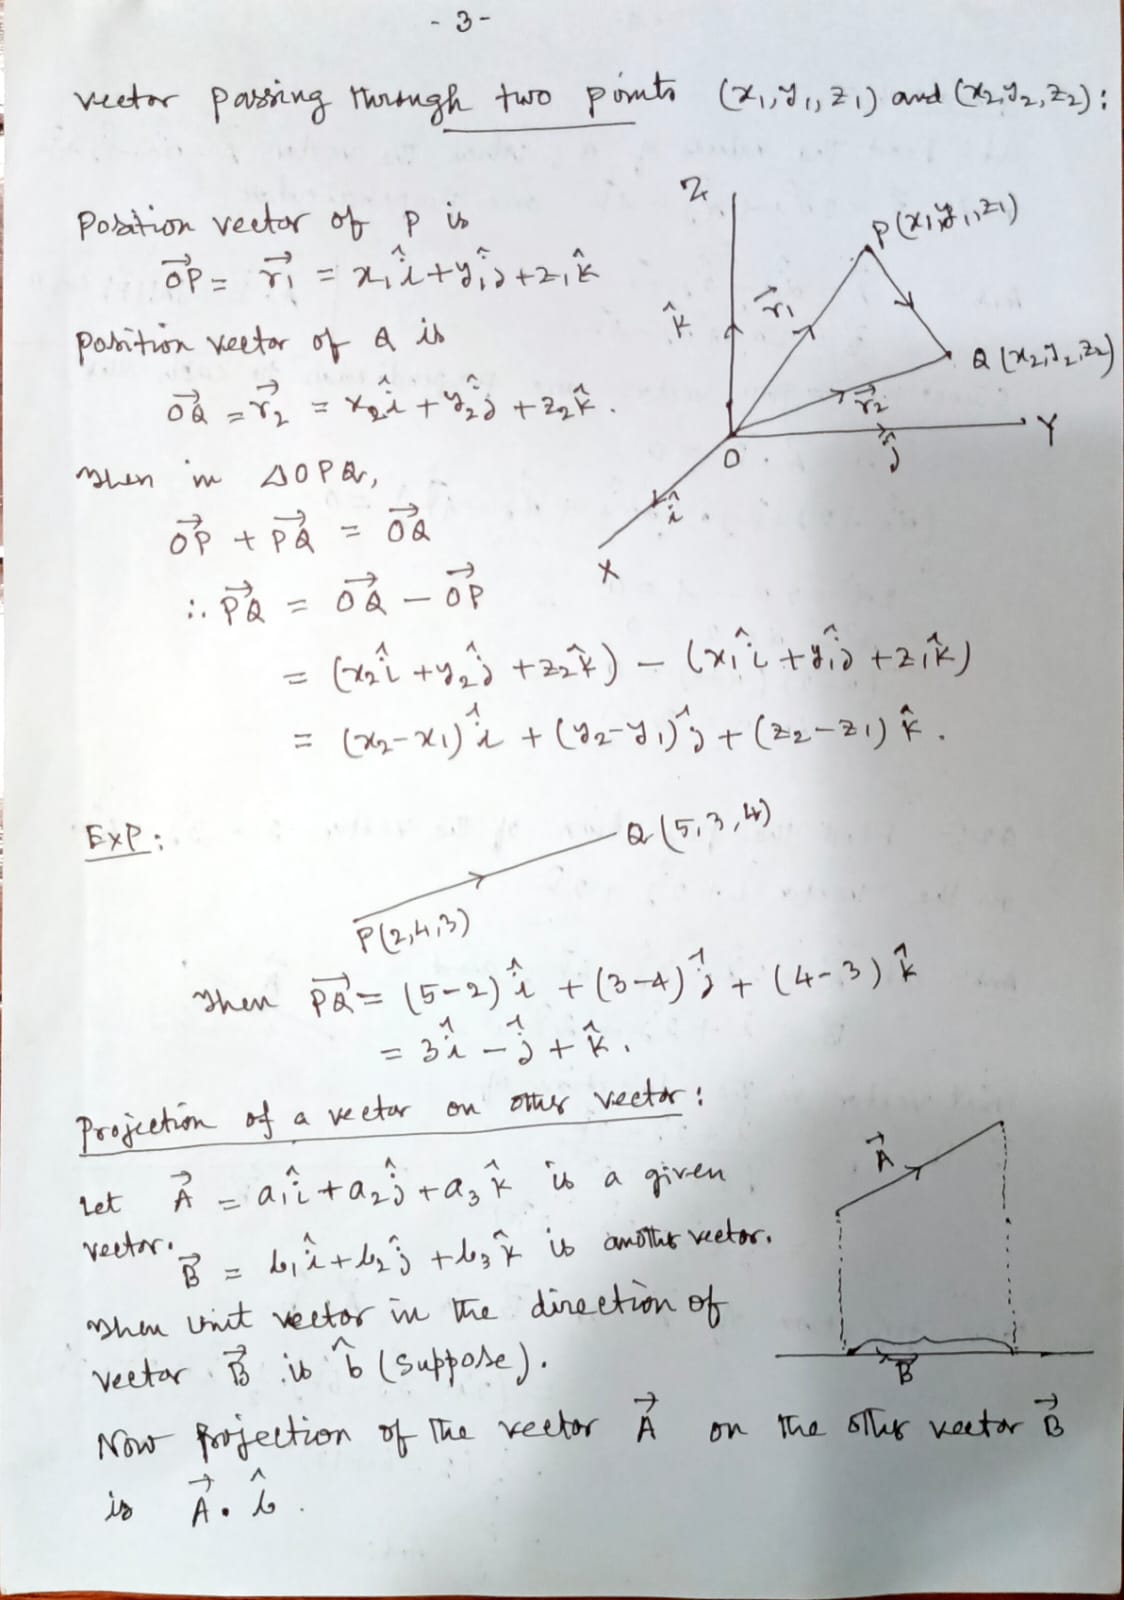 - 3 -
vector passing through two points (x₁, y₁, z₁) and (x₂, y₂, z₂) :
Z
P (x₁, y₁, z₁)
Position vector of P is
O⃗P = r⃗₁ = x₁î + y₁ĵ + z₁k̂
k̂
r⃗₁
Position vector of Q is
Q (x₂, y₂, z₂)
O⃗Q = r⃗₂ = x₂î + y₂ĵ + z₂k̂ .
r⃗₂
Y
O
ĵ
Then in ΔOPQ,
î
O⃗P + P⃗Q = O⃗Q
X
∴ P⃗Q = O⃗Q − O⃗P
= (x₂î + y₂ĵ + z₂k̂) − (x₁î + y₁ĵ + z₁k̂)
= (x₂ − x₁) î + (y₂ − y₁) ĵ + (z₂ − z₁) k̂ .
Exp :
Q (5, 3, 4)
P (2, 4, 3)
Then P⃗Q = (5−2) î + (3−4) ĵ + (4−3) k̂
= 3î − ĵ + k̂ .
Projection of a vector on other vector :
A⃗
Let A⃗ = a₁î + a₂ĵ + a₃k̂ is a given
vector.
B⃗ = b₁î + b₂ĵ + b₃k̂ is another vector.
Then unit vector in the direction of
vector B⃗ is b̂ (suppose).
B⃗
Now Projection of the vector A⃗ on the other vector B⃗
is A⃗ . b̂ .